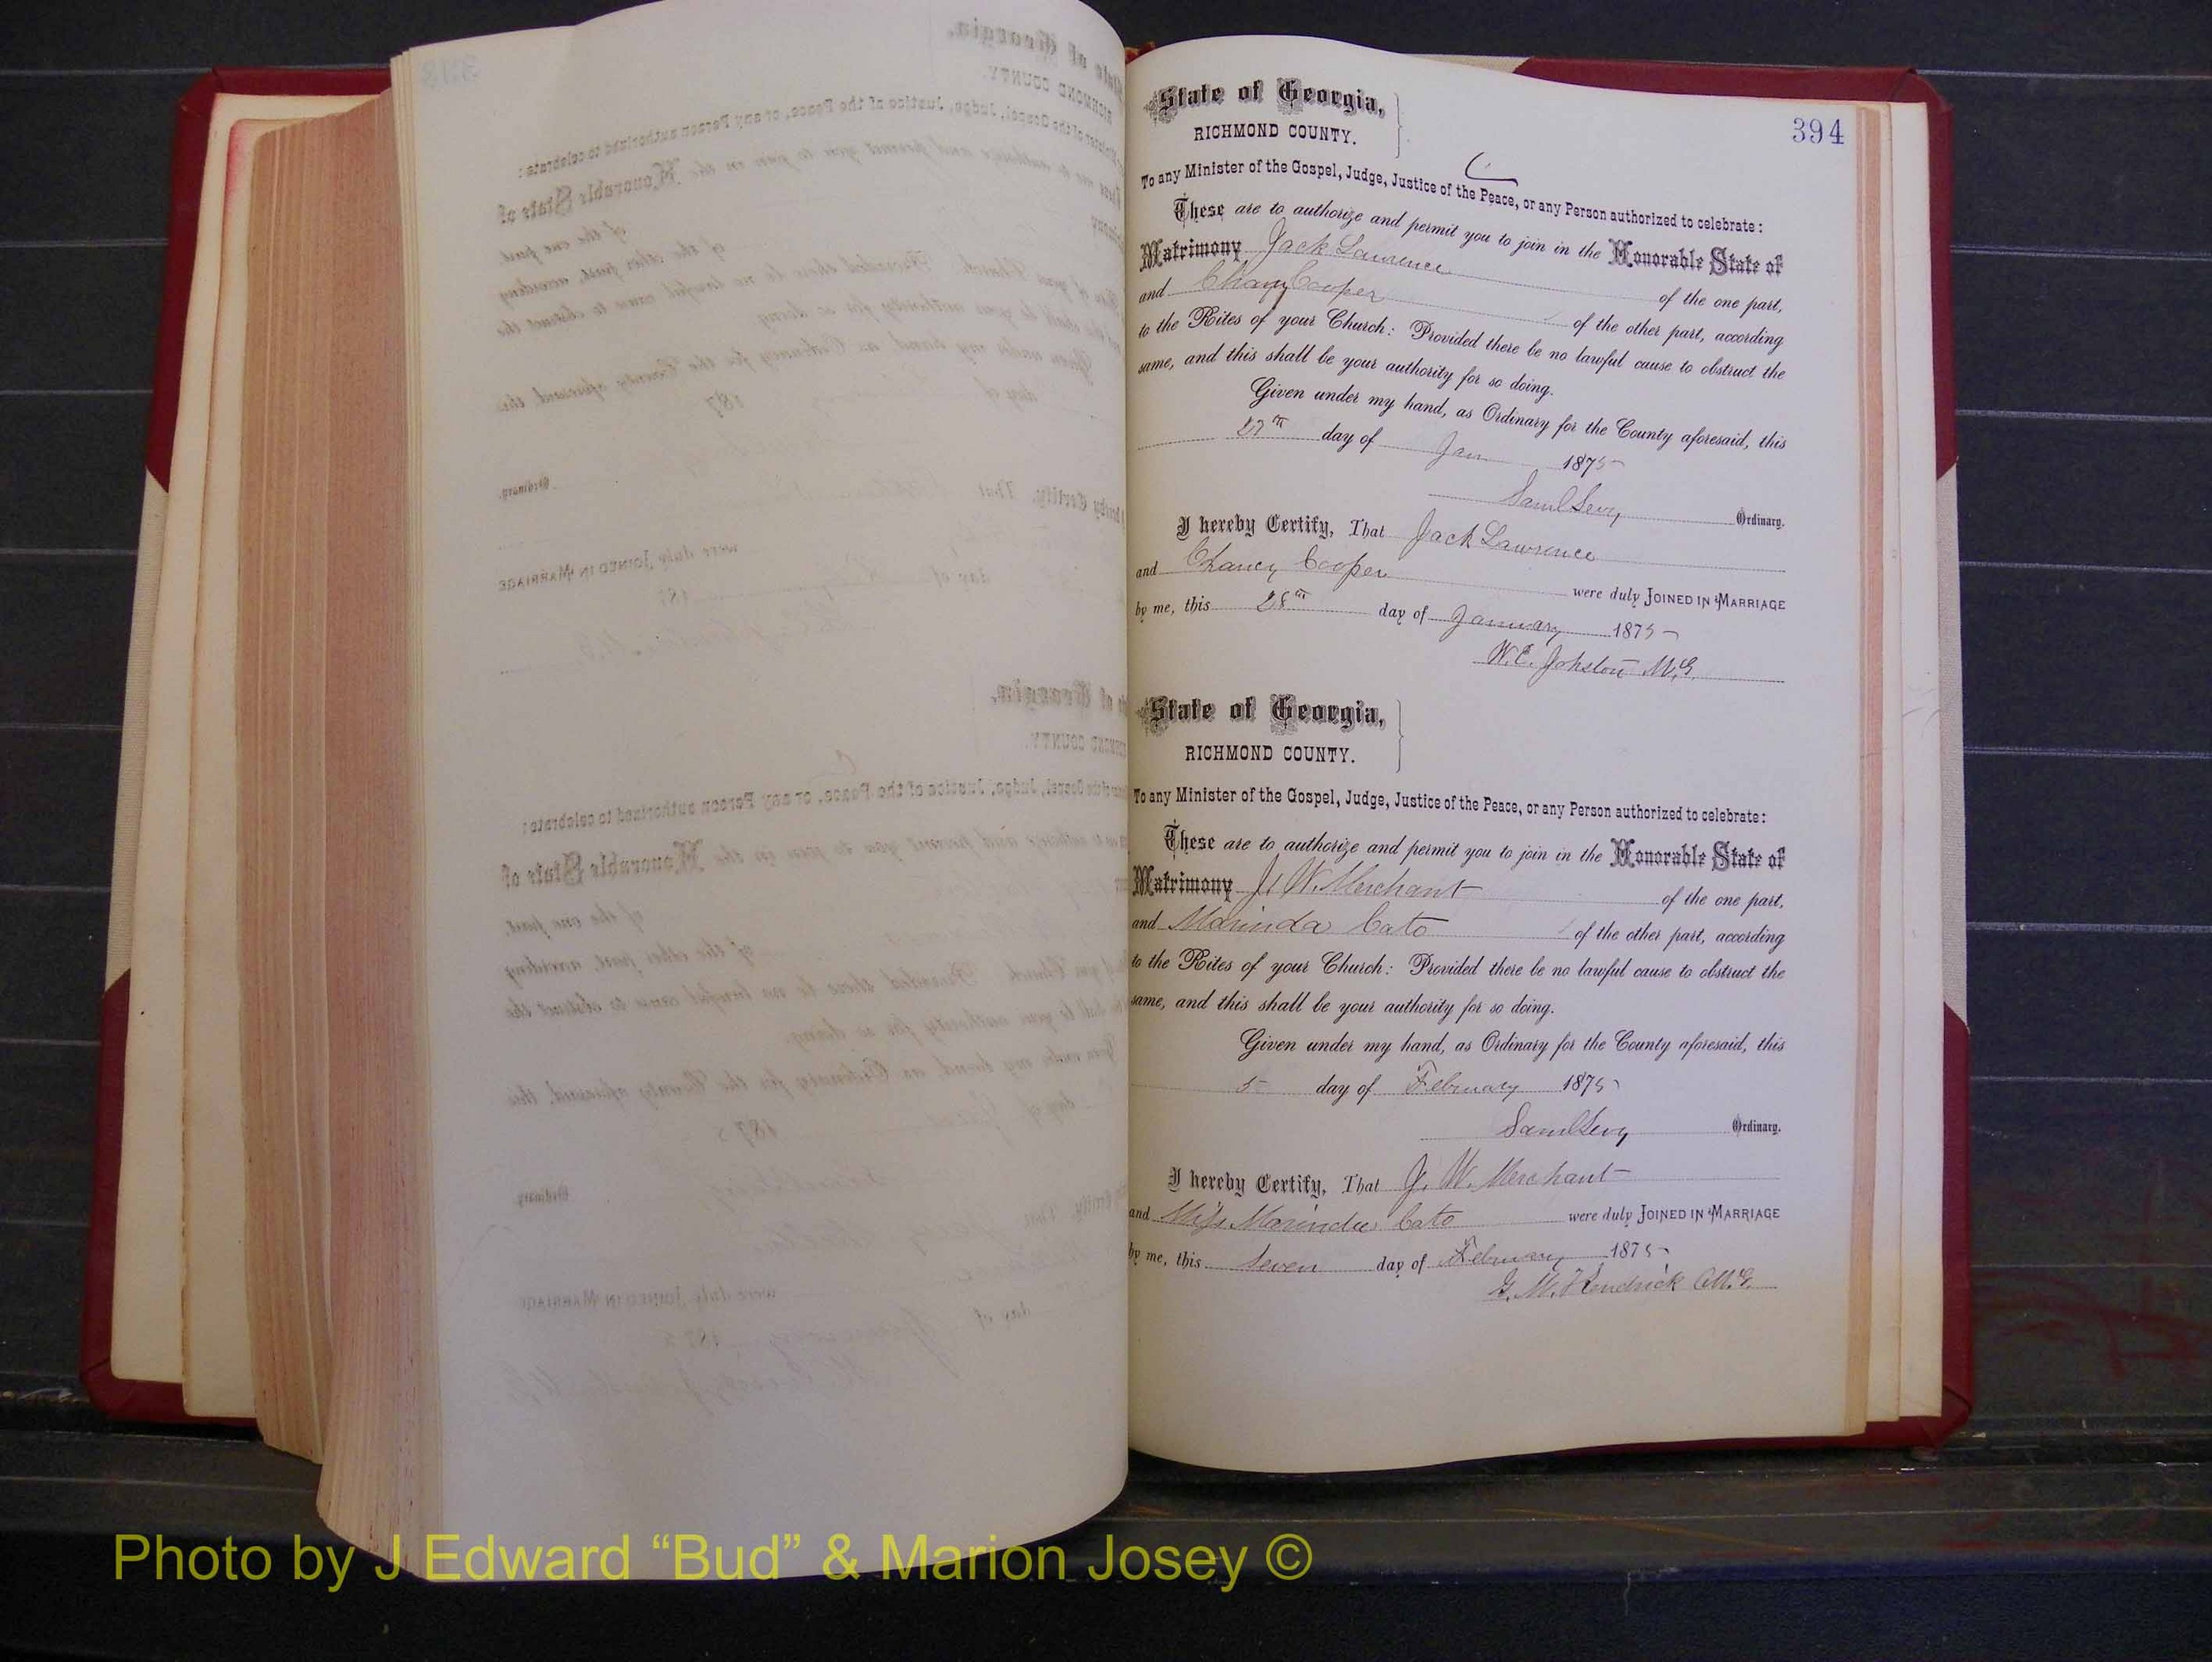 394
State of Georgia,
RICHMOND COUNTY.
C
To any Minister of the Gospel, Judge, Justice of the Peace, or any Person authorized to celebrate:
These are to authorize and permit you to join in the Honorable State of
Matrimony Jack Lawrence of the one part,
and Chancy Cooper of the other part, according
to the Rites of your Church: Provided there be no lawful cause to obstruct the
same, and this shall be your authority for so doing.
Given under my hand, as Ordinary for the County aforesaid, this
27th day of Jan 1875
Saml Levy Ordinary.
I hereby Certify, That Jack Lawrence
and Chancy Cooper were duly JOINED IN MARRIAGE
by me, this 28th day of January 1875
W.E. Johston M.G.
State of Georgia,
RICHMOND COUNTY.
To any Minister of the Gospel, Judge, Justice of the Peace, or any Person authorized to celebrate:
These are to authorize and permit you to join in the Honorable State of
Matrimony J. W. Merchant of the one part,
and Marinda Cato of the other part, according
to the Rites of your Church: Provided there be no lawful cause to obstruct the
same, and this shall be your authority for so doing.
Given under my hand, as Ordinary for the County aforesaid, this
5 day of February 1875
Saml Levy Ordinary.
I hereby Certify, That J. W. Merchant
and Miss Marinda Cato were duly JOINED IN MARRIAGE
by me, this Seven day of February 1875
G. M. Kendrick
Photo by J Edward “Bud” & Marion Josey ©